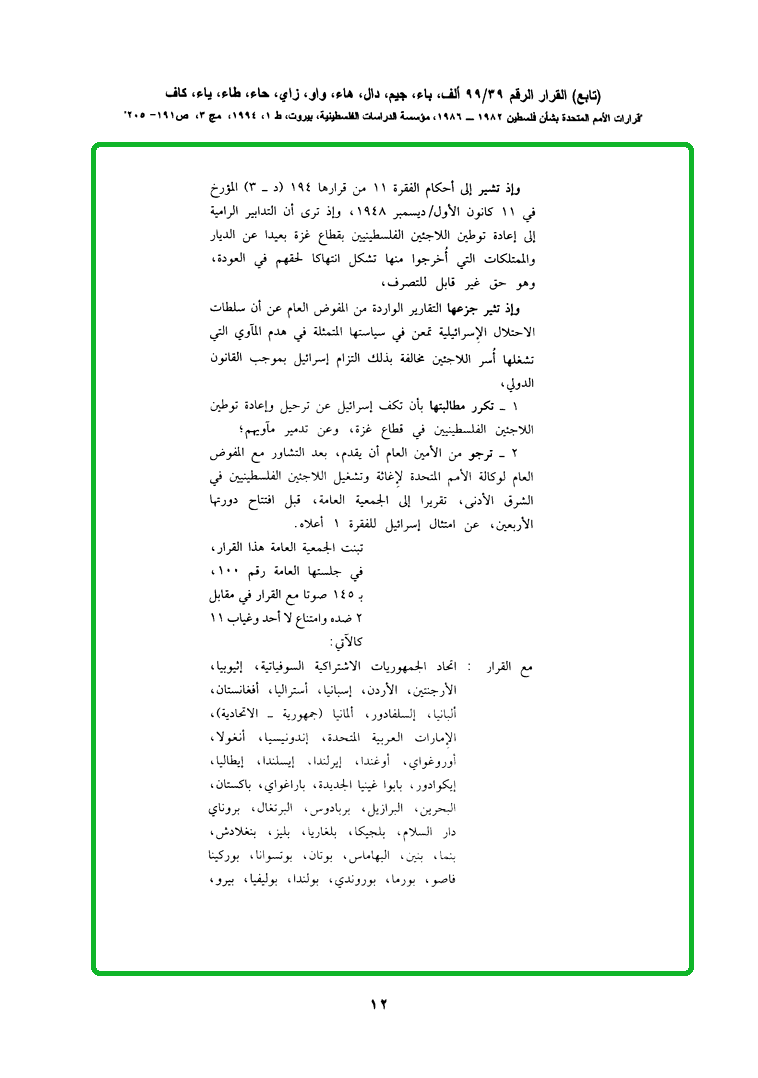 (تابع) القرار الرقم ٩٩/٣٩ ألف، باء، جيم، دال، هاء، واو، زاي، حاء، طاء، ياء، كاف
"قرارات الأمم المتحدة بشأن فلسطين ١٩٨٢ ــ ١٩٨٦، مؤسسة الدراسات الفلسطينية، بيروت، ط ١، ١٩٩٤، مج ٣، ص١٩١- ٢٠٥"
وإذ تشير إلى أحكام الفقرة ١١ من قرارها ١٩٤ (د ـ ٣) المؤرخ
في ١١ كانون الأول/ديسمبر ١٩٤٨، وإذ ترى أن التدابير الرامية
إلى إعادة توطين اللاجئين الفلسطينيين بقطاع غزة بعيدا عن الديار
والممتلكات التي أُخرجوا منها تشكل انتهاكا لحقهم في العودة،
وهو حق غير قابل للتصرف،
وإذ تثير جزعها التقارير الواردة من المفوض العام عن أن سلطات
الاحتلال الإسرائيلية تمعن في سياستها المتمثلة في هدم المآوي التي
تشغلها أُسر اللاجئين مخالفة بذلك التزام إسرائيل بموجب القانون
الدولي،
١ ـ تكرر مطالبتها بأن تكف إسرائيل عن ترحيل وإعادة توطين
اللاجئين الفلسطينيين في قطاع غزة، وعن تدمير مآويهم؛
٢ ـ ترجو من الأمين العام أن يقدم، بعد التشاور مع المفوض
العام لوكالة الأمم المتحدة لإغاثة وتشغيل اللاجئين الفلسطينيين في
الشرق الأدنى، تقريرا إلى الجمعية العامة، قبل افتتاح دورتها
الأربعين، عن امتثال إسرائيل للفقرة ١ أعلاه.
تبنت الجمعية العامة هذا القرار،
في جلستها العامة رقم ١٠٠،
بـ ١٤٥ صوتا مع القرار في مقابل
٢ ضده وامتناع لا أحد وغياب ١١
كالآتي:
مع القرار : اتحاد الجمهوريات الاشتراكية السوفياتية، إثيوبيا،
الأرجنتين، الأردن، إسبانيا، أستراليا، أفغانستان،
ألبانيا، إلسلفادور، ألمانيا (جمهورية ـ الاتحادية)،
الإمارات العربية المتحدة، إندونيسيا، أنغولا،
أوروغواي، أوغندا، إيرلندا، إيسلندا، إيطاليا،
إيكوادور، بابوا غينيا الجديدة، باراغواي، باكستان،
البحرين، البرازيل، بربادوس، البرتغال، بروناي
دار السلام، بلجيكا، بلغاريا، بليز، بنغلادش،
بنما، بنين، البهاماس، بوتان، بوتسوانا، بوركينا
فاصو، بورما، بوروندي، بولندا، بوليفيا، بيرو،
١٢